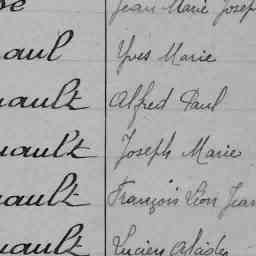 Jean Marie Josep
aul Yves Marie
ault Alfred Paul
ault Joseph Marie
ault François Léon Jean
ault Lucien Alcide